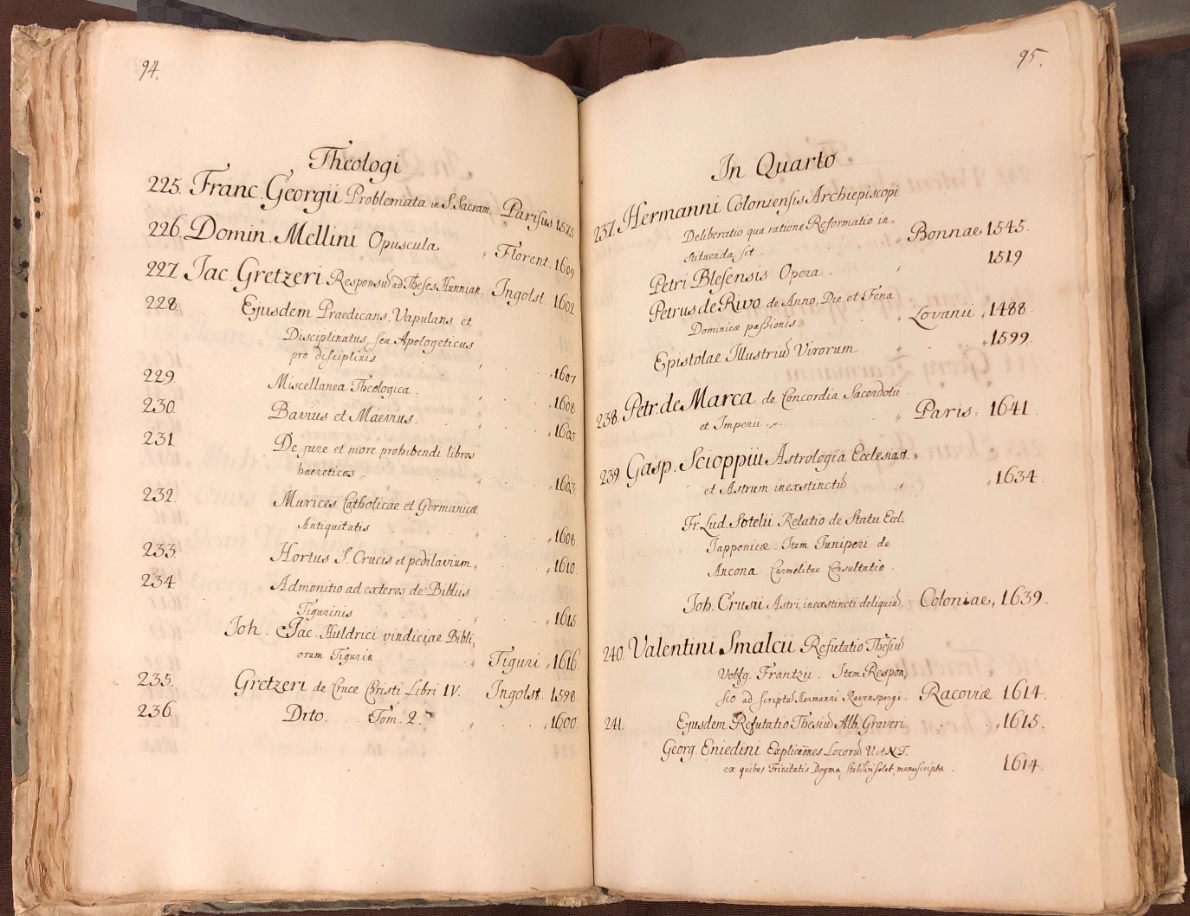 94.
Theologi
225. Franc. Georgii Problemata in S. Sacram. Parisiis 1575
226. Domin. Mellini Opuscula „ Florent. 1609
227. Jac. Gretzeri Responsū ad Theses Hunnian. Ingolst. 1602
228. Ejusdem Praedicans, Vapulans et
Disciplinatus, seu Apologeticus
pro disciplinis „ 1607
229 Miscellanea Theologica. „ 1608
230. Bavius et Maevius. „ 1605
231 De jure et more prohibendi libros
haereticos „ 1603
232. Murices Catholicae et Germanicae
Antiquitatis „ 1608.
233 Hortus S. Crucis et pedilavium „ 1610.
234. Admonitio ad exteros de Bibliis
Tigurinis „ 1615
Joh. Jac. Huldrici vindiciae Bibli,
orum Tigurin „ Tiguri „ 1616.
235. Gretzeri de Cruce Christi Libri IV. Ingolst. 1598.
236. Dito. Tom. 2. „ 1600.
95.
In Quarto
237. Hermanni Coloniensis Archiepiscopi
Deliberatio qua ratione Reformatio in,
stituenda sit „ Bonnae 1545.
Petri Blesensis Opera. „ 1519
Petrus de Rivo de Anno, Die et Feria
Dominicae passionis „ Lovanii „ 1488.
Epistolae Illustriū Virorum „ „ 1599.
238. Petr. de Marca de Concordia Sacerdotii
et Imperii „ Paris. 1641.
239. Gasp. Scioppiū Astrologia Ecclesiast.
et Astrum inexstinctū „ „ 1634.
Fr. Lud. Sotelii Relatio de Statu Eccl.
Japponicae. Item Juniperi de
Ancona Carmelitae Consultatio.
Joh. Crusii Astri inexstincti deliquiū, Coloniae, 1639.
240. Valentini Smalcii Refutatio Thesiū
Wolfg. Frantzii. Item Respon,
sio ad scriptū Hermanni Ravenspergi. Racoviæ 1614.
241. Ejusdem Refutatio Thesiū Alb. Graveri. „ 1615.
Georg. Eniedini Explicationes Locorū V. et N. T.
ex quibus Trinitatis Dogma stabiliri solet, manuscripta. 1614.